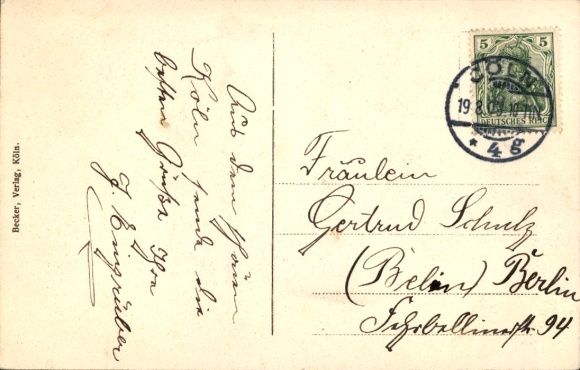 Becker, Verlag, Köln.
Aus dem schönen
Köln sende die
besten Grüße Ihr
J. Eingrüber
5 5
DEUTSCHES REICH
CÖLN
19.8.09
* 4g
Fräulein
Gertrud Schulz
(Belin) Berlin
Fehrbellinerstr 94